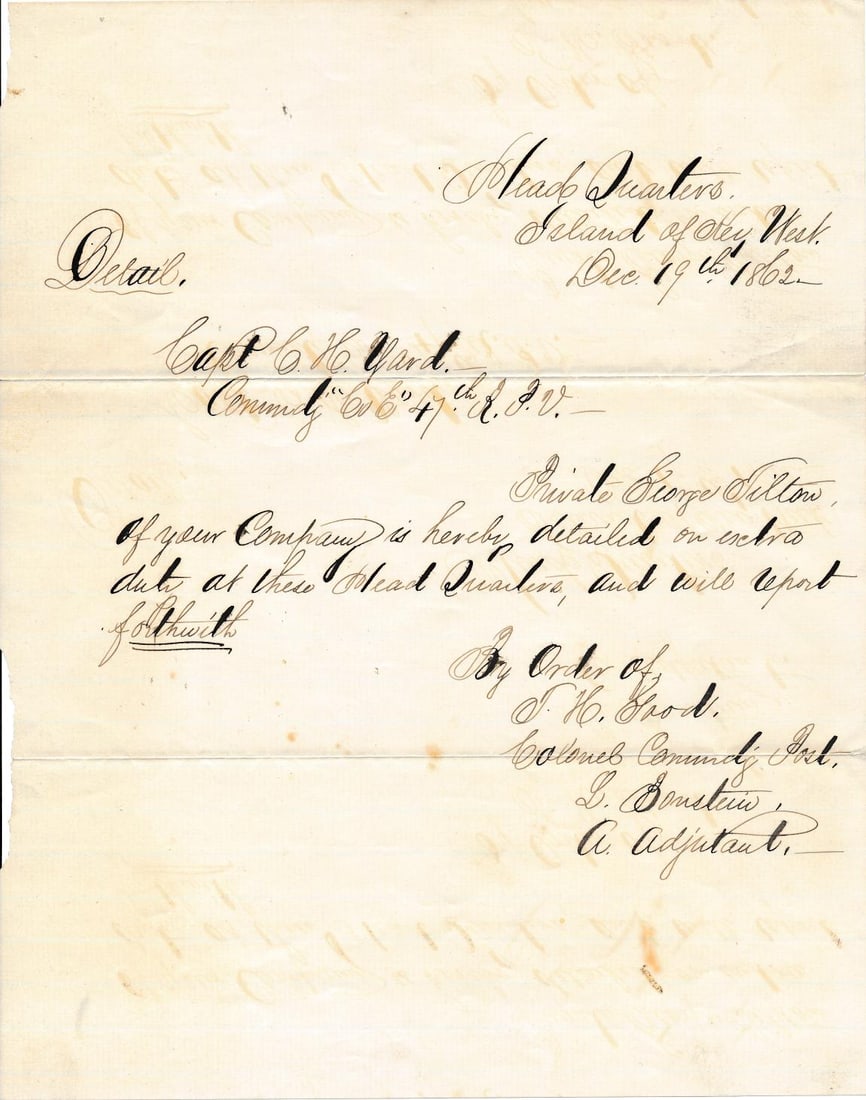 Head Quarters.
Island of Key West.
Dec. 19th 1862
Detail.
Capt C. H. Yard.
Comundg "Co E" 47th R. P. V.
Private George Tilton,
of your Company is hereby detailed on extra
duty at these Head Quarters, and will report
forthwith
By Order of,
T. H. Good.
Colonel Comundg Post.
L. Bonstein,
A. Adjutant.